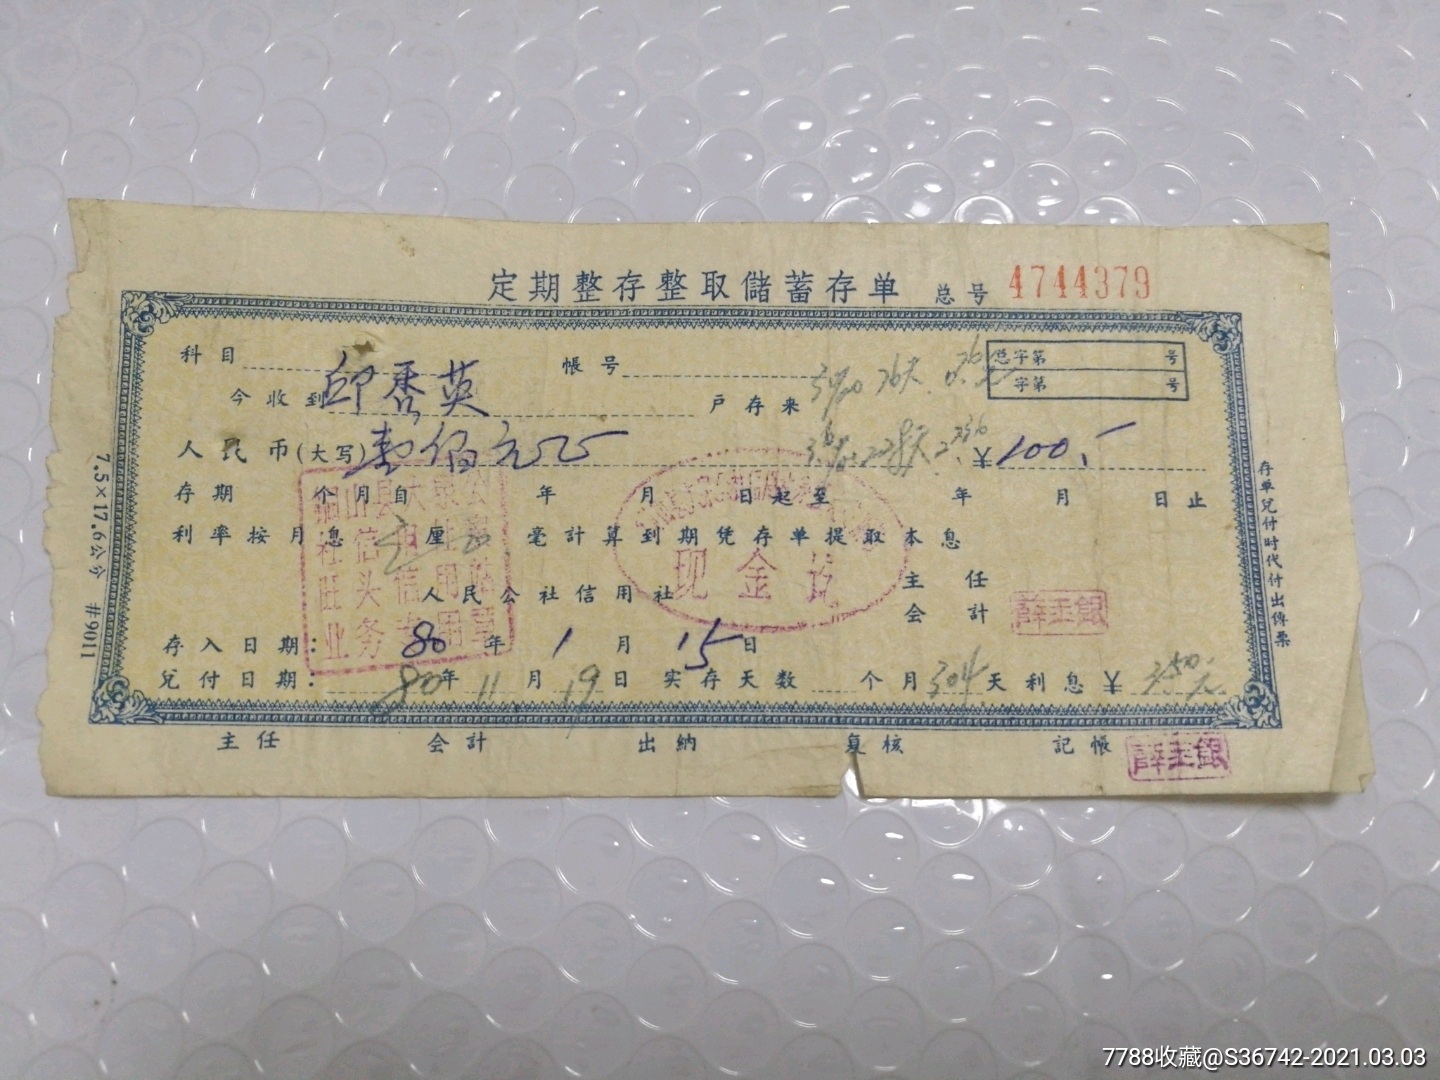 定期整存整取儲蓄存单 总号 4744379
科目 帳号 总字第 号
字第 号
今收到 邱秀英 户存来
人民币(大写) 壹佰元正 ¥100.-
存期 个月自 年 月 日起至 年 月 日止
利率按月息 厘 毫計算到期凭存单提取本息
現金讫
人民公社信用社
主任
会計
薛玉银
存入日期: 80年 1月 15日
兑付日期: 80年 11月 19日 实存天数 个月 304天 利息¥ 3.50元
主任 会計 出納 复核 記帳 薛玉银
7.5×17.6公分 #9011
存单兑付时代付出傳票
铜山县大泉公
7788收藏@S36742-2021.03.03